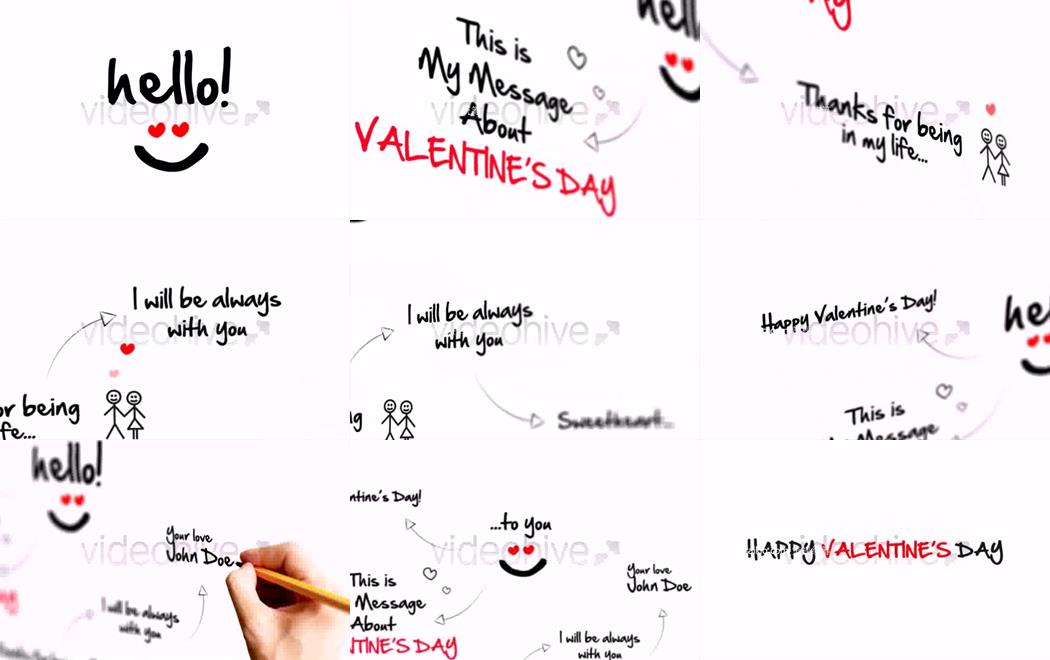 hello!
videohive
This is
My Message
About
VALENTINE'S DAY
hell
videohive
Thanks for being
in my life...
videohive
I will be always
with you
videohive
or being
fe...
I will be always
with you
videohive
Sweetheart...
Happy Valentine's Day!
videohive
he
This is
Message
hello!
Your love
John Doe
videohive
I will be always
with you
ntine's Day!
...to you
videohive
This is
Message
About
NTINE'S DAY
Your love
John Doe
I will be always
with you
HAPPY VALENTINE'S DAY